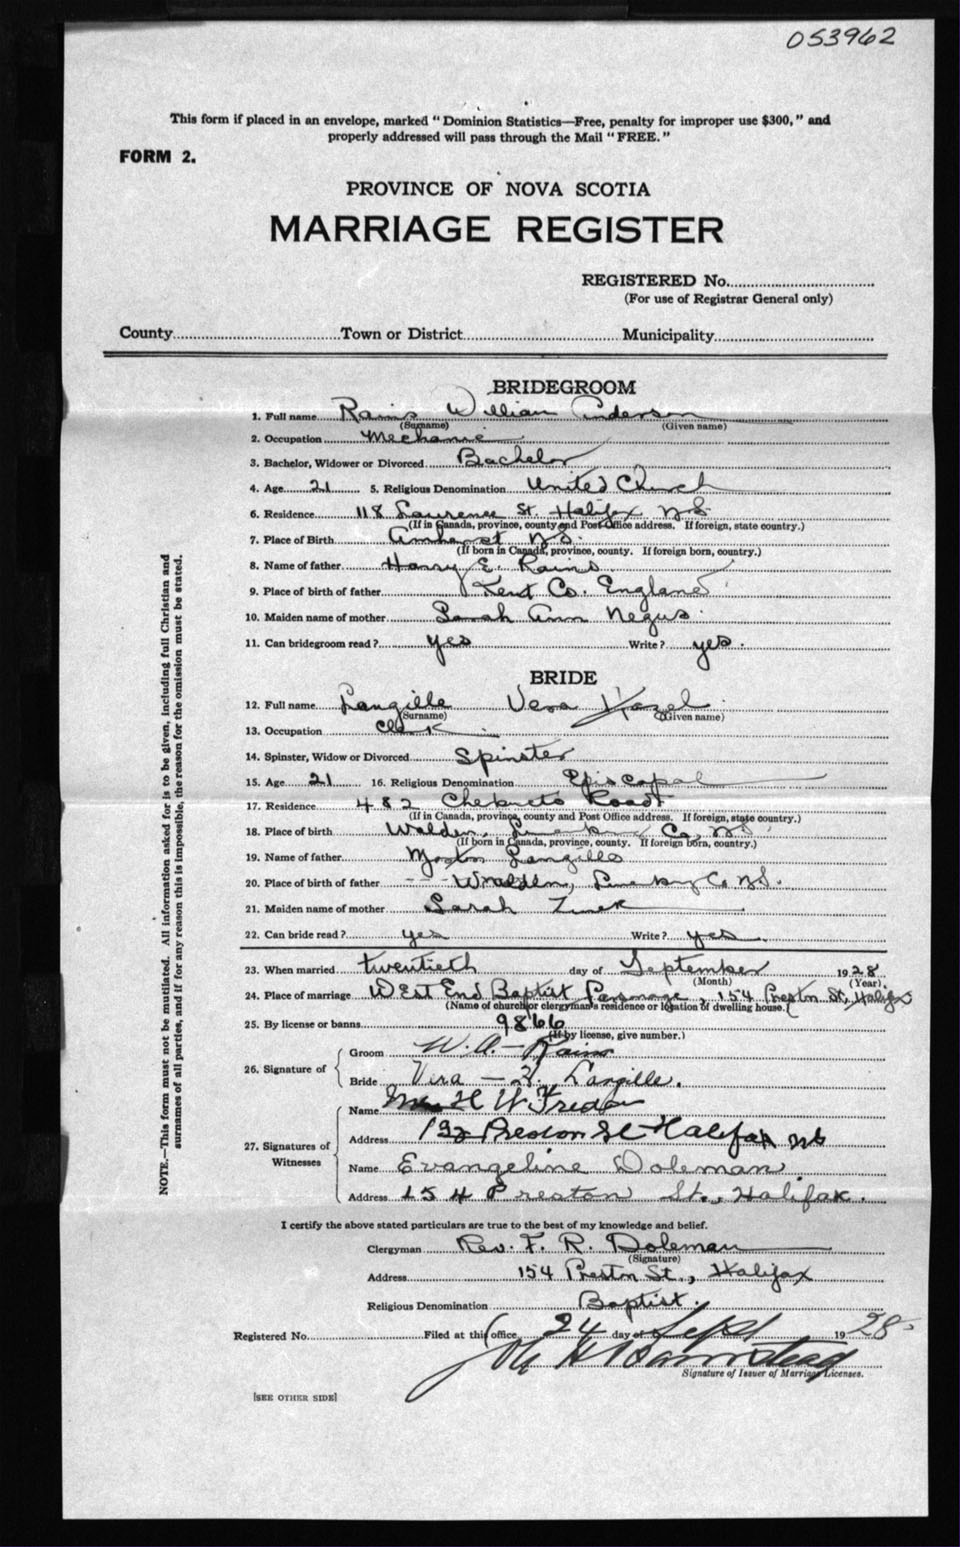 053962
This form if placed in an envelope, marked "Dominion Statistics—Free, penalty for improper use $300," and
properly addressed will pass through the Mail "FREE."
FORM 2.
PROVINCE OF NOVA SCOTIA
MARRIAGE REGISTER
REGISTERED No.
(For use of Registrar General only)
County Town or District Municipality
BRIDEGROOM
1. Full name Rains William Anderson
(Surname) (Given name)
2. Occupation Mechanic
3. Bachelor, Widower or Divorced Bachelor
4. Age 21 5. Religious Denomination United Church
6. Residence 118 Lawrence St. Halifax N.S.
(If in Canada, province, county and Post Office address. If foreign, state country.)
7. Place of Birth Amherst N.S.
(If born in Canada, province, county. If foreign born, country.)
8. Name of father Harry E. Rains.
9. Place of birth of father Kent Co. England
10. Maiden name of mother Sarah Ann Negus.
11. Can bridegroom read? yes Write? yes.
BRIDE
12. Full name Langille Vera Hazel
(Surname) (Given name)
13. Occupation Clerk
14. Spinster, Widow or Divorced Spinster
15. Age 21 16. Religious Denomination Episcopal
17. Residence 482 Chebucto Road
(If in Canada, province, county and Post Office address. If foreign, state country.)
18. Place of birth Walden, Lunenburg Co. N.S.
(If born in Canada, province, county. If foreign born, country.)
19. Name of father Langille
20. Place of birth of father Walden, Co. N.S.
21. Maiden name of mother Sarah Zinck
22. Can bride read? yes Write? yes.
23. When married twentieth day of September 1928
(Month) (Year)
24. Place of marriage West End Baptist Parsonage, 154 Preston St, Halifax
(Name of church or clergyman's residence or location of dwelling house.)
25. By license or banns 9866
(If by license, give number.)
26. Signature of
Groom W. A. Rains
Bride Vera H. Langille.
27. Signatures of Witnesses
Name H W
Address Preston St Halifax NS
Name Evangeline Doleman
Address 154 Preston St., Halifax.
NOTE.—This form must not be mutilated. All information asked for is to be given, including full Christian and
surnames of all parties, and if for any reason this is impossible, the reason for the omission must be stated.
I certify the above stated particulars are true to the best of my knowledge and belief.
Clergyman Rev. F. R. Doleman
(Signature)
Address 154 Preston St., Halifax
Religious Denomination Baptist.
Registered No. Filed at this office 24 day of Sept 1928
Signature of Issuer of Marriage Licenses.
[SEE OTHER SIDE]